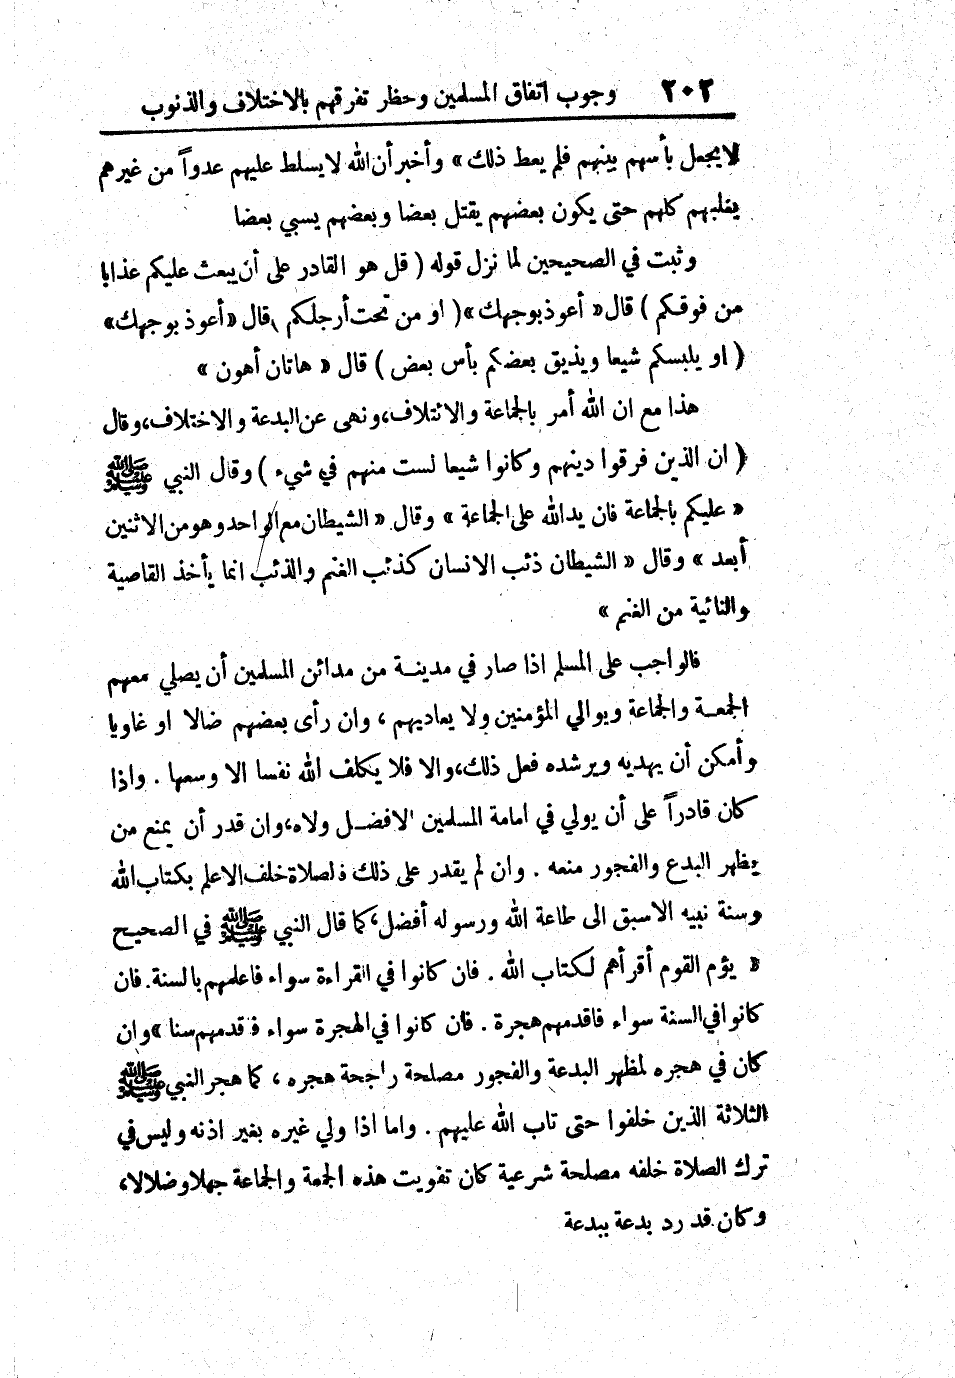 ٢٠٢ وجوب اتفاق المسلمين وحظر تفرقهم بالاختلاف والذنوب
لا يجعل بأسهم بينهم فلم يعط ذلك » وأخبر أن الله لا يسلط عليهم عدواً من غيرهم
يغلبهم كلهم حتى يكون بعضهم يقتل بعضا وبعضهم يسبي بعضا
وثبت في الصحيحين لما نزل قوله ( قل هو القادر على أن يبعث عليكم عذابا
من فوقكم ) قال « أعوذ بوجهك »( او من تحت أرجلكم ) قال «أعوذ بوجهك»
( او يلبسكم شيعا ويذيق بعضكم بأس بعض ) قال « هاتان أهون »
هذا مع ان الله أمر بالجماعة والائتلاف، ونهى عن البدعة والاختلاف، وقال
( ان الذين فرقوا دينهم وكانوا شيعا لست منهم في شيء ) وقال النبي ﷺ
« عليكم بالجماعة فان يد الله على الجماعة » وقال « الشيطان مع الواحد وهو من الاثنين
أبعد » وقال « الشيطان ذئب الانسان كذئب الغنم والذئب انما يأخذ القاصية
والنائية من الغنم »
فالواجب على المسلم اذا صار في مدينـة من مدائن المسلمين أن يصلي معهم
الجمعـة والجماعة ويوالي المؤمنين ولا يعاديهم ، وان رأى بعضهم ضالا او غاويا
وأمكن أن يهديه ويرشده فعل ذلك، والا فلا يكلف الله نفسا الا وسعها . واذا
كان قادراً على أن يولي في امامة المسلمين الافضـل ولاه، وان قدر أن يمنع من
يظهر البدع والفجور منعه . وان لم يقدر على ذلك فالصلاة خلف الاعلم بكتاب الله
وسنة نبيه الاسبق الى طاعة الله ورسوله أفضل، كما قال النبي ﷺ في الصحيح
« يؤم القوم أقرأهم لكتاب الله . فان كانوا في القراءة سواء فاعلمهم بالسنة. فان
كانوا في السنة سواء فاقدمهم هجرة . فان كانوا في الهجرة سواء فاقدمهم سنا » وان
كان في هجره لمظهر البدعة والفجور مصلحة راجحة هجره ، كما هجر النبي ﷺ
الثلاثة الذين خلفوا حتى تاب الله عليهم . واما اذا ولي غيره بغير اذنه وليس في
ترك الصلاة خلفه مصلحة شرعية كان تفويت هذه الجمعة والجماعة جهلا وضلالا،
وكان قد رد بدعة ببدعة